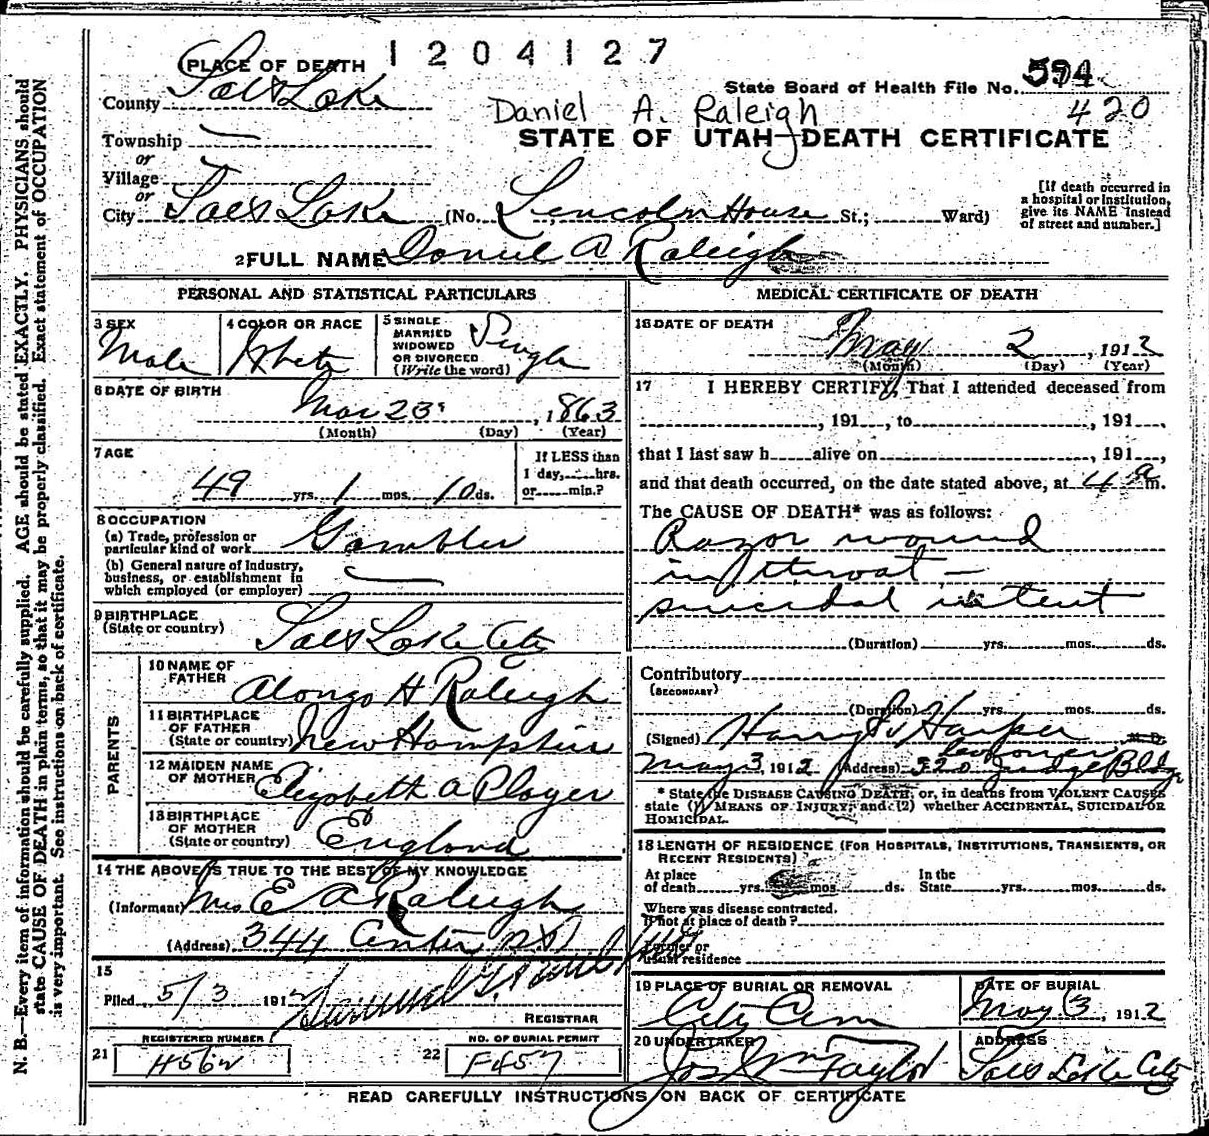 1204127
PLACE OF DEATH
County Salt Lake
State Board of Health File No. 594
420
Daniel A. Raleigh
STATE OF UTAH—DEATH CERTIFICATE
Township
or
Village
or
City Salt Lake (No. Lincoln House St.; Ward)
[If death occurred in a hospital or institution, give its NAME instead of street and number.]
2 FULL NAME Daniel A Raleigh
PERSONAL AND STATISTICAL PARTICULARS
3 SEX
Male
4 COLOR OR RACE
White
5 SINGLE
MARRIED
WIDOWED
OR DIVORCED
(Write the word)
Single
6 DATE OF BIRTH
Mar 23, 1863
(Month) (Day) (Year)
7 AGE
49 yrs. 1 mos. 10 ds.
If LESS than
1 day, hrs.
or min.?
8 OCCUPATION
(a) Trade, profession or
particular kind of work Gambler
(b) General nature of Industry,
business, or establishment in
which employed (or employer)
9 BIRTHPLACE
(State or country) Salt Lake City
PARENTS
10 NAME OF
FATHER Alonzo H Raleigh
11 BIRTHPLACE
OF FATHER
(State or country) New Hampshire
12 MAIDEN NAME
OF MOTHER Elizabeth A Player
13 BIRTHPLACE
OF MOTHER
(State or country) England
14 THE ABOVE IS TRUE TO THE BEST OF MY KNOWLEDGE
(Informant) Mrs E A Raleigh
(Address) 344 Center St
15
Filed 5/3 1912
REGISTRAR
REGISTERED NUMBER
21 H562
NO. OF BURIAL PERMIT
22 F457
MEDICAL CERTIFICATE OF DEATH
16 DATE OF DEATH
May 2, 1912
(Month) (Day) (Year)
17 I HEREBY CERTIFY, That I attended deceased from
, 191 , to , 191 ,
that I last saw h alive on , 191 ,
and that death occurred, on the date stated above, at 4 a m.
The CAUSE OF DEATH* was as follows:
Razor wound
in throat –
suicidal intent
(Duration) yrs. mos. ds.
Contributory
(SECONDARY)
(Duration) yrs. mos. ds.
(Signed) Harry S Harper M.D.
Coroner
May 3, 1912 (Address) 320 Judge Bldg
* State the DISEASE CAUSING DEATH; or, in deaths from VIOLENT CAUSES
state (1) MEANS OF INJURY; and (2) whether ACCIDENTAL, SUICIDAL OR
HOMICIDAL.
18 LENGTH OF RESIDENCE (FOR HOSPITALS, INSTITUTIONS, TRANSIENTS, OR
RECENT RESIDENTS)
At place
of death yrs. mos. ds.
In the
State yrs. mos. ds.
Where was disease contracted,
if not at place of death?
Former or
usual residence
19 PLACE OF BURIAL OR REMOVAL
City Cem
DATE OF BURIAL
May 3, 1912
20 UNDERTAKER
Jos Wm Taylor
ADDRESS
Salt Lake City
READ CAREFULLY INSTRUCTIONS ON BACK OF CERTIFICATE
N. B.—Every item of information should be carefully supplied. AGE should be stated EXACTLY. PHYSICIANS should
state CAUSE OF DEATH in plain terms, so that it may be properly classified. Exact statement of OCCUPATION
is very important. See instructions on back of certificate.